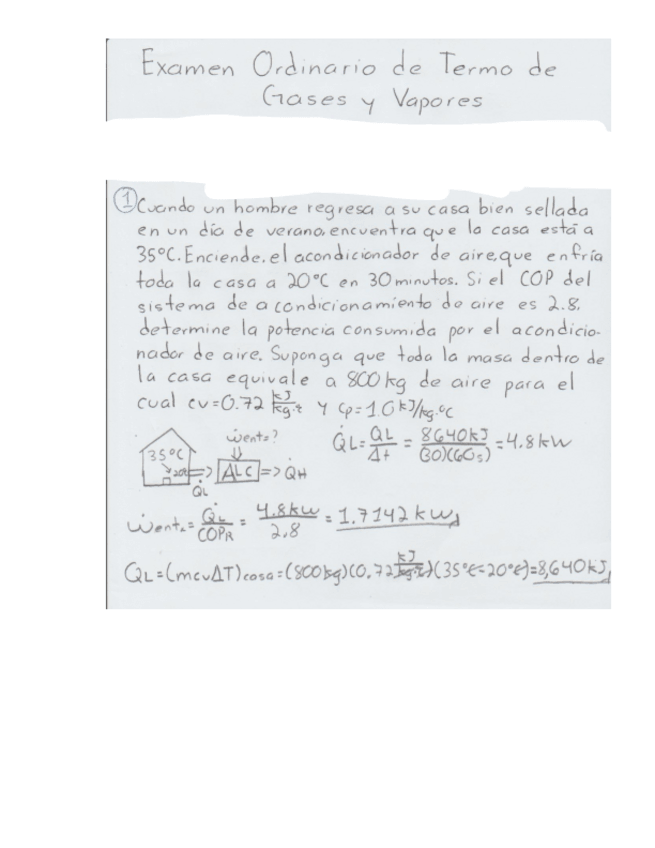 Examen Ordinario de Termo de
Gases y Vapores
① Cuando un hombre regresa a su casa bien sellada
en un día de verano, encuentra que la casa está a
35°C. Enciende, el acondicionador de aire, que enfría
toda la casa a 20°C en 30 minutos. Si el COP del
sistema de acondicionamiento de aire es 2.8,
determine la potencia consumida por el acondicio-
nador de aire. Suponga que toda la masa dentro de
la casa equivale a 800 kg de aire para el
cual cv=0.72 kJ/kg·°C y cp=1.0 kJ/kg·°C
Ẇent=? Q̇L = QL/Δt = 8640kJ/(30)(60s) = 4.8kW
35°C 20°C => A/C => Q̇H
Q̇L
Ẇent = Q̇L/COPR = 4.8kW/2.8 = 1.7142 kW
QL=(mcvΔT)casa=(800kg)(0.72 kJ/kg·°C)(35°C-20°C)=8,640kJ